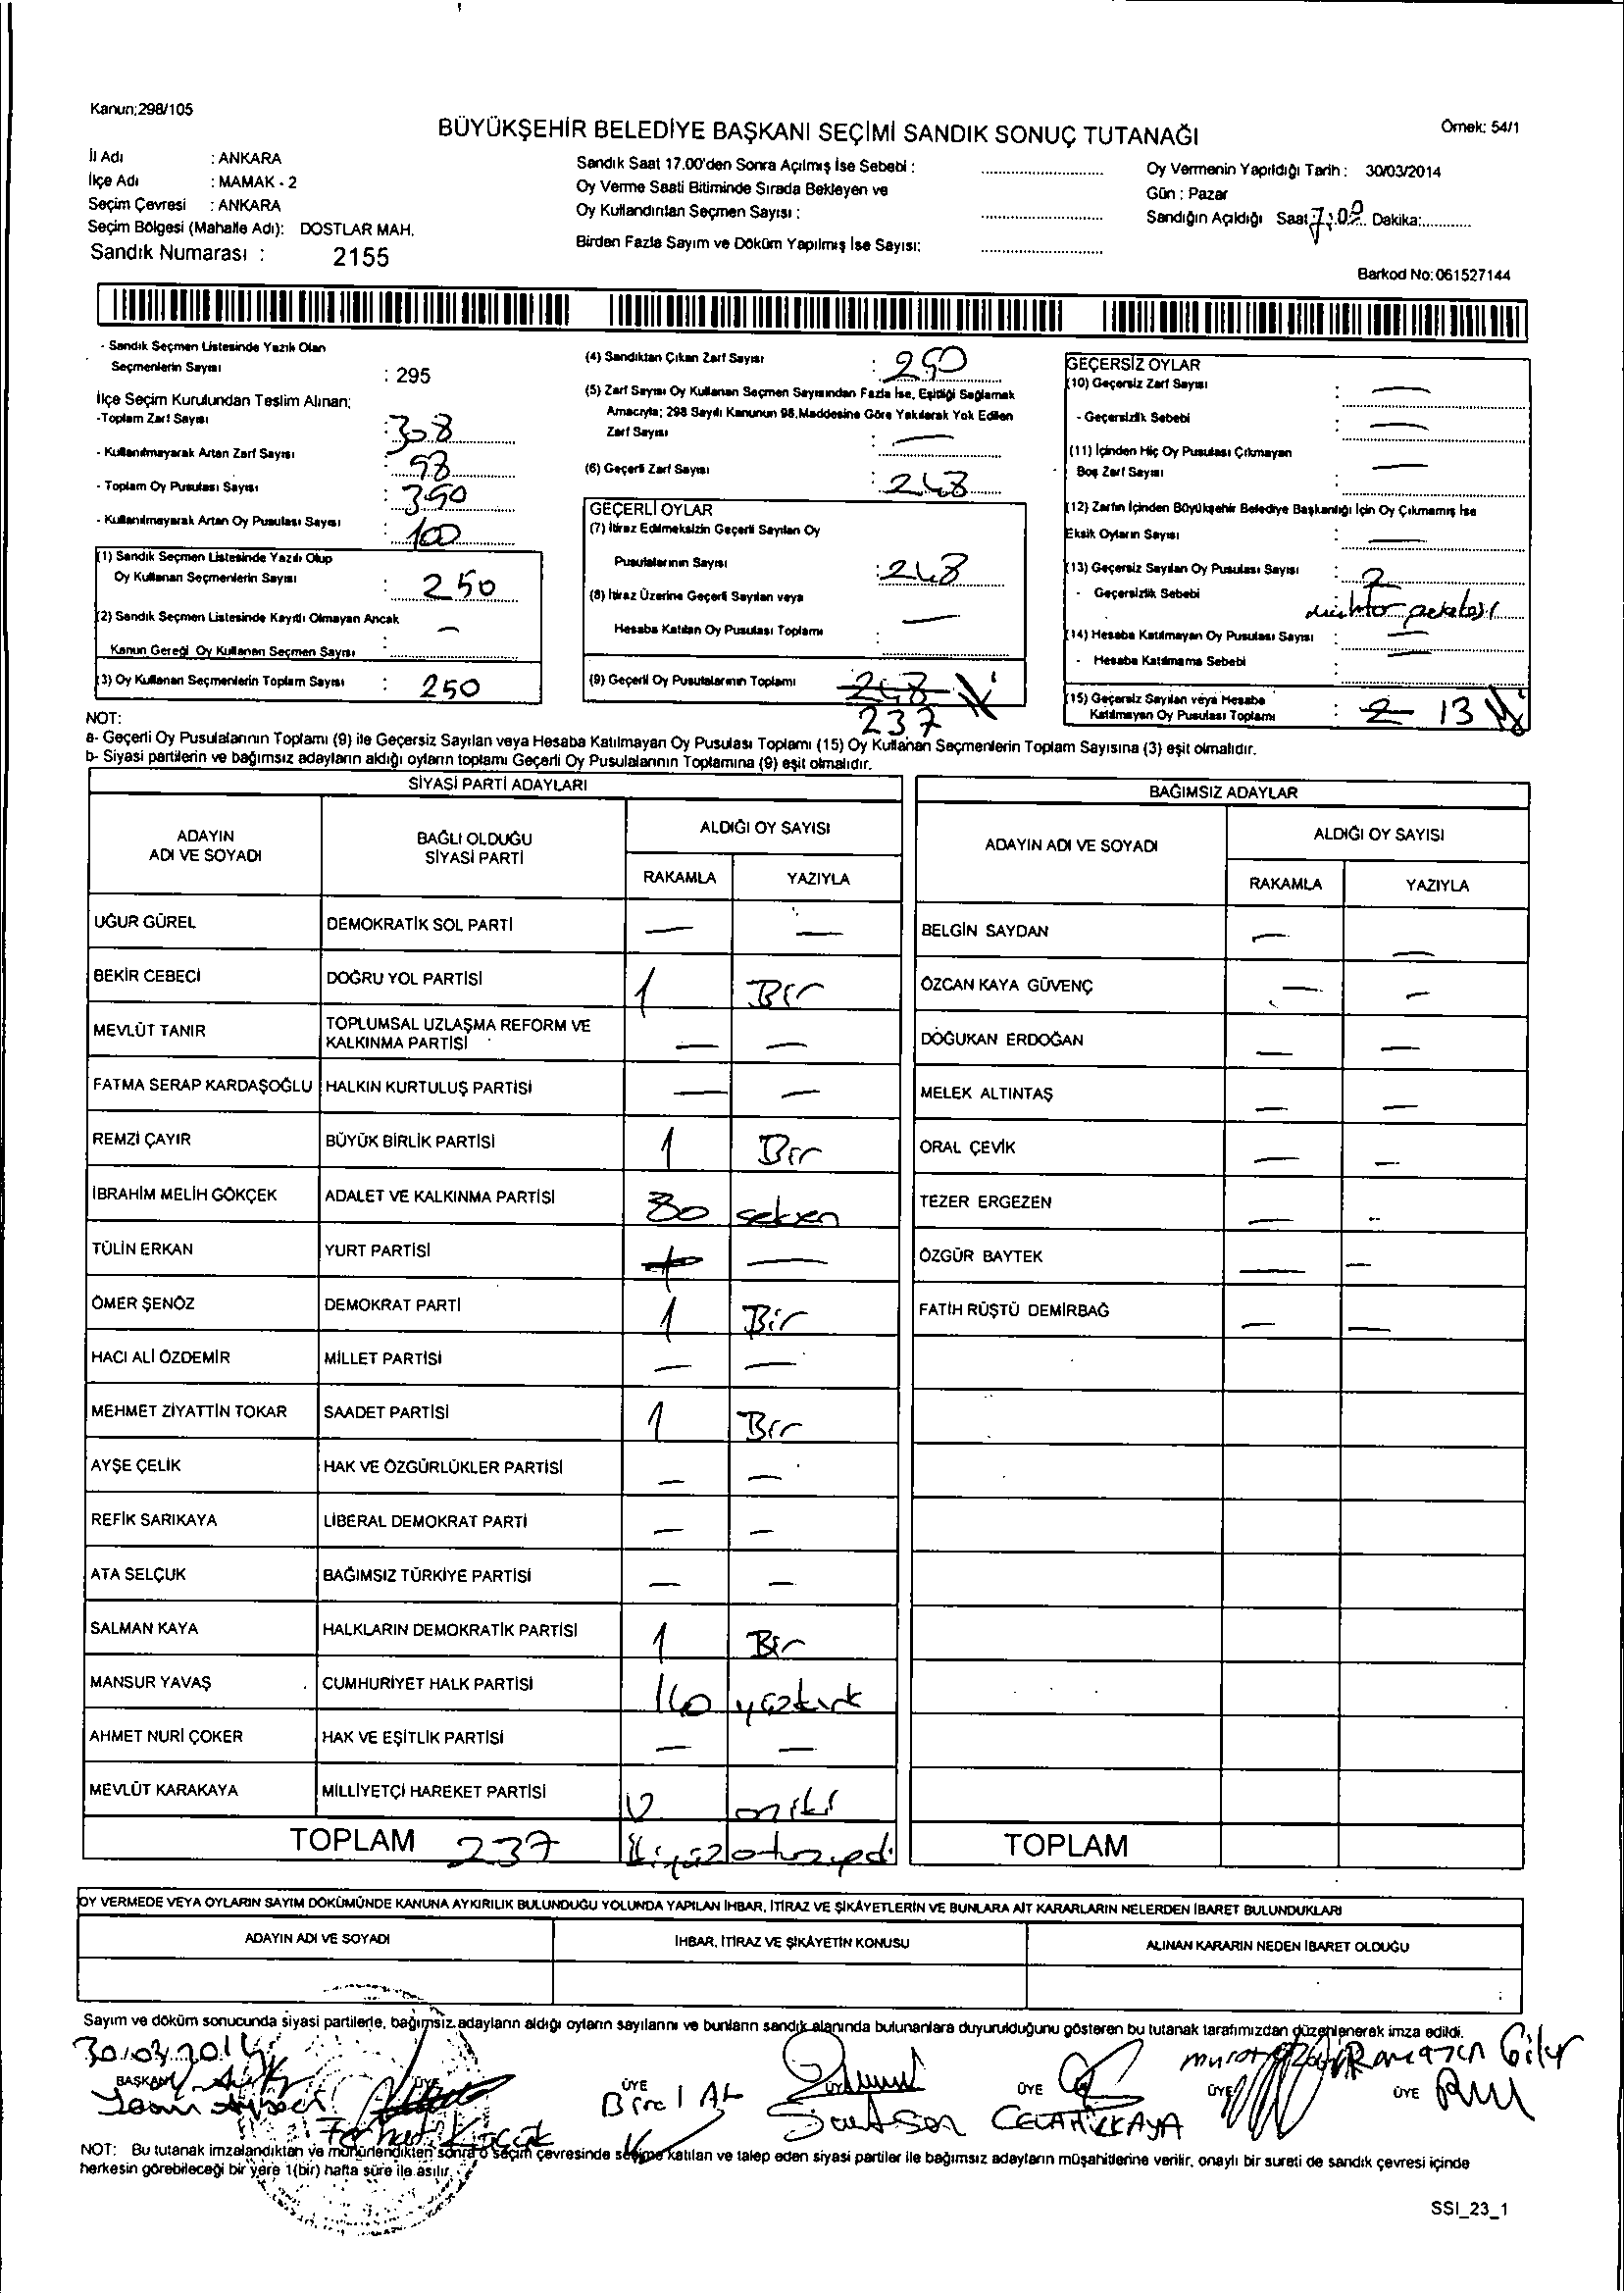 Kanun:298/105
BÜYÜKŞEHİR BELEDİYE BAŞKANI SEÇİMİ SANDIK SONUÇ TUTANAĞI
Örnek: 54/1
İl Adı : ANKARA
İlçe Adı : MAMAK - 2
Seçim Çevresi : ANKARA
Seçim Bölgesi (Mahalle Adı): DOSTLAR MAH.
Sandık Numarası : 2155
Sandık Saat 17.00'den Sonra Açılmış İse Sebebi :
Oy Verme Saati Bitiminde Sırada Bekleyen ve
Oy Kullandırılan Seçmen Sayısı :
Birden Fazla Sayım ve Döküm Yapılmış İse Sayısı:
Oy Vermenin Yapıldığı Tarih : 30/03/2014
Gün : Pazar
Sandığın Açıldığı Saat Dakika:
Barkod No: 061527144
- Sandık Seçmen Listesinde Yazılı Olan
Seçmenlerin Sayısı : 295
İlçe Seçim Kurulundan Teslim Alınan;
-Toplam Zarf Sayısı : 308
- Kullanılmayarak Artan Zarf Sayısı : 98
- Toplam Oy Pusulası Sayısı : 390
- Kullanılmayarak Artan Oy Pusulası Sayısı : 100
(1) Sandık Seçmen Listesinde Yazılı Olup
Oy Kullanan Seçmenlerin Sayısı : 250
(2) Sandık Seçmen Listesinde Kayıtlı Olmayan Ancak
Kanun Gereği Oy Kullanan Seçmen Sayısı : —
(3) Oy Kullanan Seçmenlerin Toplam Sayısı : 250
(4) Sandıktan Çıkan Zarf Sayısı : 250
(5) Zarf Sayısı Oy Kullanan Seçmen Sayısından Fazla İse, Eşitliği Sağlamak
Amacıyla; 298 Sayılı Kanunun 98.Maddesine Göre Yakılarak Yok Edilen
Zarf Sayısı : —
(6) Geçerli Zarf Sayısı : 248
GEÇERLİ OYLAR
(7) İtiraz Edilmeksizin Geçerli Sayılan Oy
Pusulalarının Sayısı : 248
(8) İtiraz Üzerine Geçerli Sayılan veya
Hesaba Katılan Oy Pusulası Toplamı : —
(9) Geçerli Oy Pusulalarının Toplamı 248
237
GEÇERSİZ OYLAR
(10) Geçersiz Zarf Sayısı : —
- Geçersizlik Sebebi : —
(11) İçinden Hiç Oy Pusulası Çıkmayan
Boş Zarf Sayısı : —
(12) Zarfın İçinden Büyükşehir Belediye Başkanlığı İçin Oy Çıkmamış İse
Eksik Oyların Sayısı : —
(13) Geçersiz Sayılan Oy Pusulası Sayısı : 2
- Geçersizlik Sebebi :
(14) Hesaba Katılmayan Oy Pusulası Sayısı : —
- Hesaba Katılmama Sebebi : —
(15) Geçersiz Sayılan veya Hesaba
Katılmayan Oy Pusulası Toplamı : 2 13
NOT:
a- Geçerli Oy Pusulalarının Toplamı (9) ile Geçersiz Sayılan veya Hesaba Katılmayan Oy Pusulası Toplamı (15) Oy Kullanan Seçmenlerin Toplam Sayısına (3) eşit olmalıdır.
b- Siyasi partilerin ve bağımsız adayların aldığı oyların toplamı Geçerli Oy Pusulalarının Toplamına (9) eşit olmalıdır.
SİYASİ PARTİ ADAYLARI
ADAYIN ADI VE SOYADI
BAĞLI OLDUĞU SİYASİ PARTİ
ALDIĞI OY SAYISI
RAKAMLA YAZIYLA
UĞUR GÜREL DEMOKRATİK SOL PARTİ — —
BEKİR CEBECİ DOĞRU YOL PARTİSİ 1 Bir
MEVLÜT TANIR TOPLUMSAL UZLAŞMA REFORM VE KALKINMA PARTİSİ — —
FATMA SERAP KARDAŞOĞLU HALKIN KURTULUŞ PARTİSİ — —
REMZİ ÇAYIR BÜYÜK BİRLİK PARTİSİ 1 Bir
İBRAHİM MELİH GÖKÇEK ADALET VE KALKINMA PARTİSİ 80 seksen
TÜLİN ERKAN YURT PARTİSİ — —
ÖMER ŞENÖZ DEMOKRAT PARTİ 1 Bir
HACI ALİ ÖZDEMİR MİLLET PARTİSİ — —
MEHMET ZİYATTİN TOKAR SAADET PARTİSİ 1 Bir
AYŞE ÇELİK HAK VE ÖZGÜRLÜKLER PARTİSİ — —
REFİK SARIKAYA LİBERAL DEMOKRAT PARTİ — —
ATA SELÇUK BAĞIMSIZ TÜRKİYE PARTİSİ — —
SALMAN KAYA HALKLARIN DEMOKRATİK PARTİSİ 1 Bir
MANSUR YAVAŞ CUMHURİYET HALK PARTİSİ 140 yüzkırk
AHMET NURİ ÇOKER HAK VE EŞİTLİK PARTİSİ — —
MEVLÜT KARAKAYA MİLLİYETÇİ HAREKET PARTİSİ 12 oniki
TOPLAM 237 ikiyüzotuzyedi
BAĞIMSIZ ADAYLAR
ADAYIN ADI VE SOYADI
ALDIĞI OY SAYISI
RAKAMLA YAZIYLA
BELGİN SAYDAN — —
ÖZCAN KAYA GÜVENÇ — —
DOĞUKAN ERDOĞAN — —
MELEK ALTINTAŞ — —
ORAL ÇEVİK — —
TEZER ERGEZEN — —
ÖZGÜR BAYTEK — —
FATİH RÜŞTÜ DEMİRBAĞ — —
TOPLAM
OY VERMEDE VEYA OYLARIN SAYIM DÖKÜMÜNDE KANUNA AYKIRILIK BULUNDUĞU YOLUNDA YAPILAN İHBAR, İTİRAZ VE ŞİKÂYETLERİN VE BUNLARA AİT KARARLARIN NELERDEN İBARET BULUNDUKLARI
ADAYIN ADI VE SOYADI
İHBAR, İTİRAZ VE ŞİKÂYETİN KONUSU
ALINAN KARARIN NEDEN İBARET OLDUĞU
Sayım ve döküm sonucunda siyasi partilerle, bağımsız adayların aldığı oyların sayılarını ve bunların sandık alanında bulunanlara duyurulduğunu gösteren bu tutanak tarafımızdan düzenlenerek imza edildi.
30.03.2014
BAŞKAN ÜYE ÜYE ÜYE ÜYE ÜYE ÜYE
NOT: Bu tutanak imzalandıktan ve mühürlendikten sonra o seçim çevresinde seçime katılan ve talep eden siyasi partiler ile bağımsız adayların müşahitlerine verilir, onaylı bir sureti de sandık çevresi içinde
herkesin görebileceği bir yere 1(bir) hafta süre ile asılır.
SSI_23_1